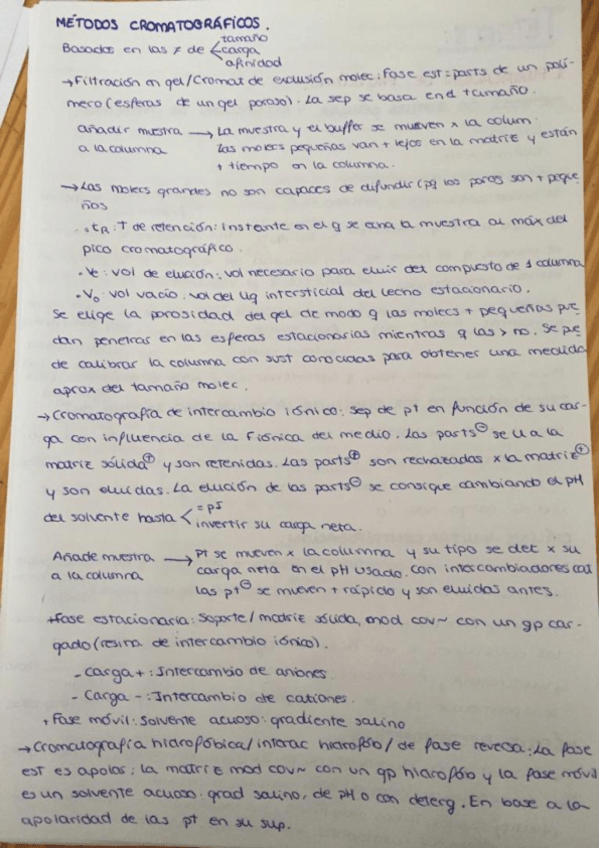 MÉTODOS CROMATOGRÁFICOS.
tamaño
Basados en las ≠ de < carga
afinidad
→ Filtración en gel/Cromat de exclusión molec: Fase est = parts de un polí-
mero (esferas de un gel poroso). La sep se basa en el tamaño.
añadir muestra → La muestra y el buffer se mueven x la colum.
a la columna Las molecs pequeñas van + lejos en la matriz y están
+ tiempo en la columna.
→ Las molecs grandes no son capaces de difundir (pq los poros son + peque-
ños
• tR: T de retención: instante en el q se eluye la muestra al máx del
pico cromatográfico.
• Ve: vol de elución: vol necesario para eluir det compuesto de 1 columna
• V₀: vol vacío: vol del líq intersticial del lecho estacionario.
Se elige la porosidad del gel de modo q las molecs + pequeñas pue-
dan penetrar en las esferas estacionarias mientras q las > no. Se pue-
de calibrar la columna con sust conocidas para obtener una medida
aprox del tamaño molec.
→ Cromatografía de intercambio iónico: Sep de pt en función de su car-
ga con influencia de la F iónica del medio. Las parts⊖ se u a la
matriz sólida⊕ y son retenidas. Las parts⊕ son rechazadas x la matriz⊕
y son eluidas. La elución de las parts⊖ se consigue cambiando el pH
del solvente hasta < = pI
invertir su carga neta.
Añade muestra → Pt se mueven x la columna y su tipo se det x su
a la columna carga neta en el pH usado. Con intercambiadores cat
las pt⊖ se mueven + rápido y son eluidas antes.
+ Fase estacionaria: Soporte/matriz sólida, mod cov~ con un gp car-
gado (resina de intercambio iónico).
- Carga +: Intercambio de aniones.
- Carga -: Intercambio de cationes.
+ Fase móvil: Solvente acuoso: gradiente salino
→ Cromatografía hidrofóbica/interac hidrofób/de fase reversa: La fase
est es apolar: la matriz mod cov~ con un gp hidrofób y la fase móvil
es un solvente acuoso: grad salino, de pH o con deterg. En base a la
apolaridad de las pt en su sup.